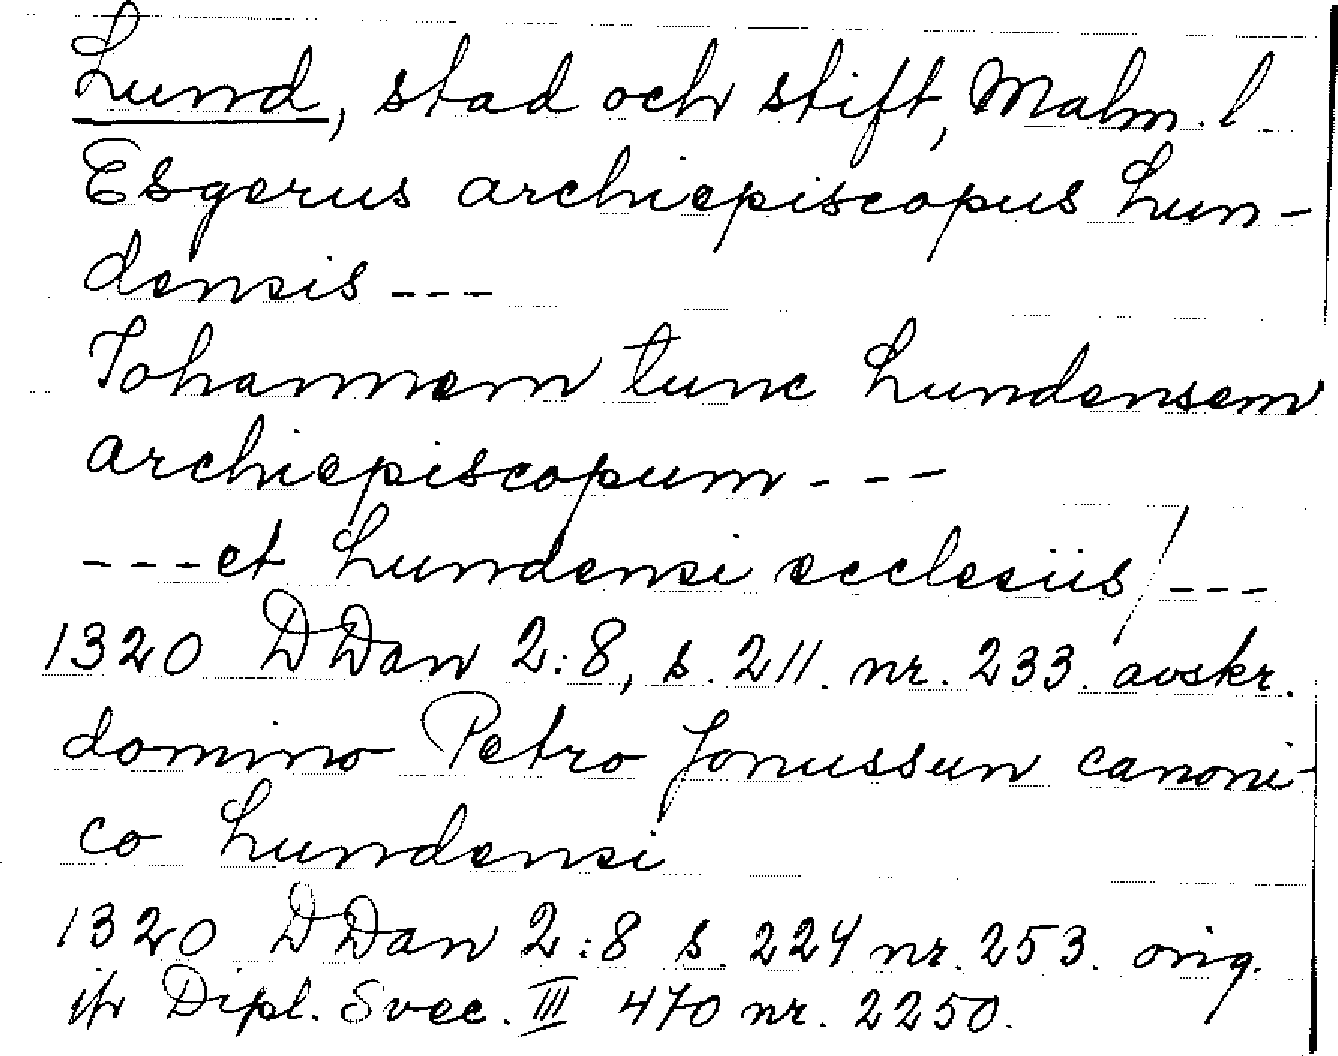 Lund, stad och stift, Malm. l
Esgerus archiepiscopus Lun-
densis ---
Johannem tunc Lundensem
archiepiscopum ---
---et Lundensi ecclesiis/---
1320 DDan 2:8, s. 211. nr. 233. avskr.
domino Petro Jonussun canoni-
co Lundensi
1320 DDan 2:8 s. 224 nr. 253. orig.
jfr Dipl. Svec. III 470 nr. 2250.